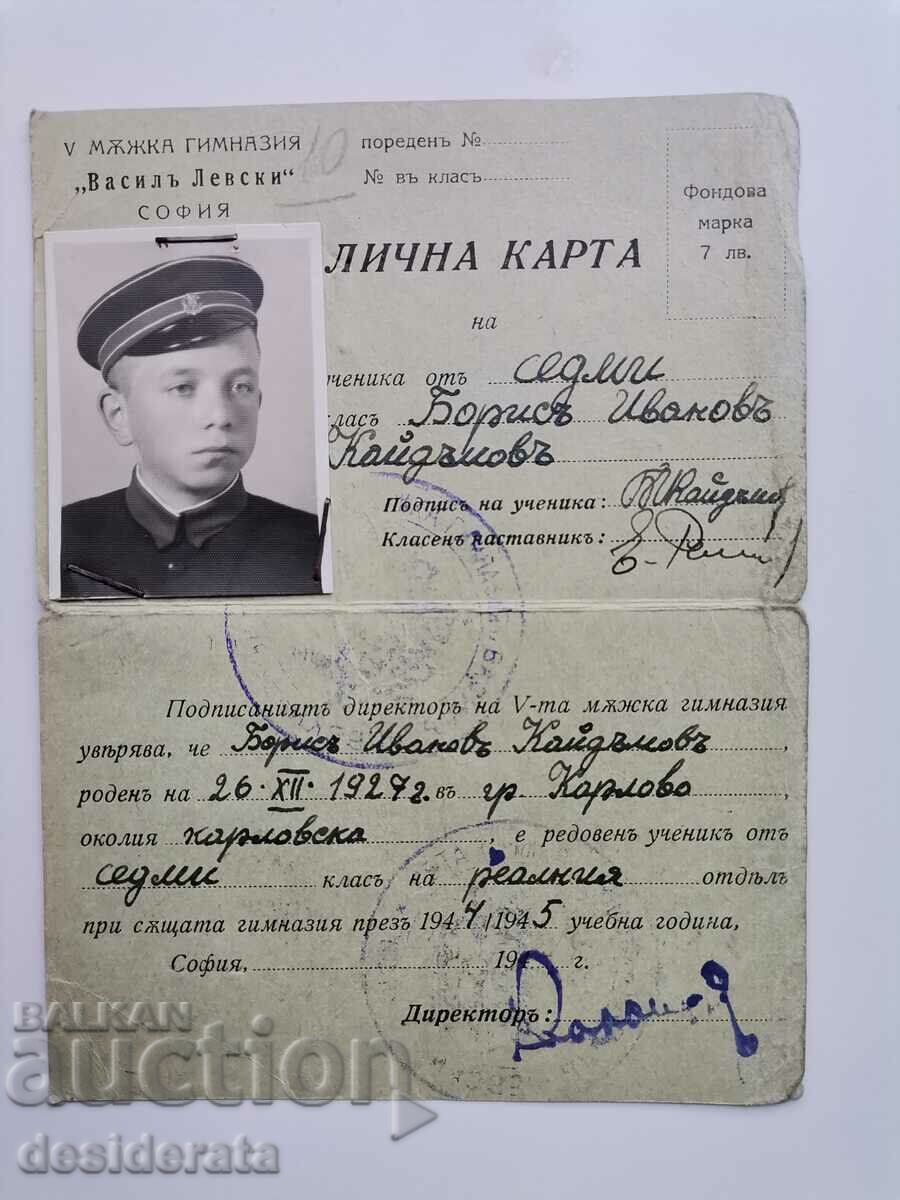 V МѪЖКА ГИМНАЗИЯ
„Василъ Левски“
СОФИЯ
10
пореденъ №
№ въ класъ
Фондова
марка
7 лв.
ЛИЧНА КАРТА
на
ученика отъ седми
класъ Борисъ Ивановъ
Кайдъмовъ
Подпись на ученика:
Класенъ наставникъ:
Подписаниятъ директоръ на V-та мѫжка гимназия
увѣрява, че Борисъ Ивановъ Кайдъмовъ,
роденъ на 26·XII·1927 г. въ гр. Карлово,
околия карловска, е редовенъ ученикъ отъ
седми класъ на реалния отдѣлъ
при сѫщата гимназия презъ 1944/1945 учебна година,
София, 194 г.
Директоръ:
BALKAN
auction
desiderata